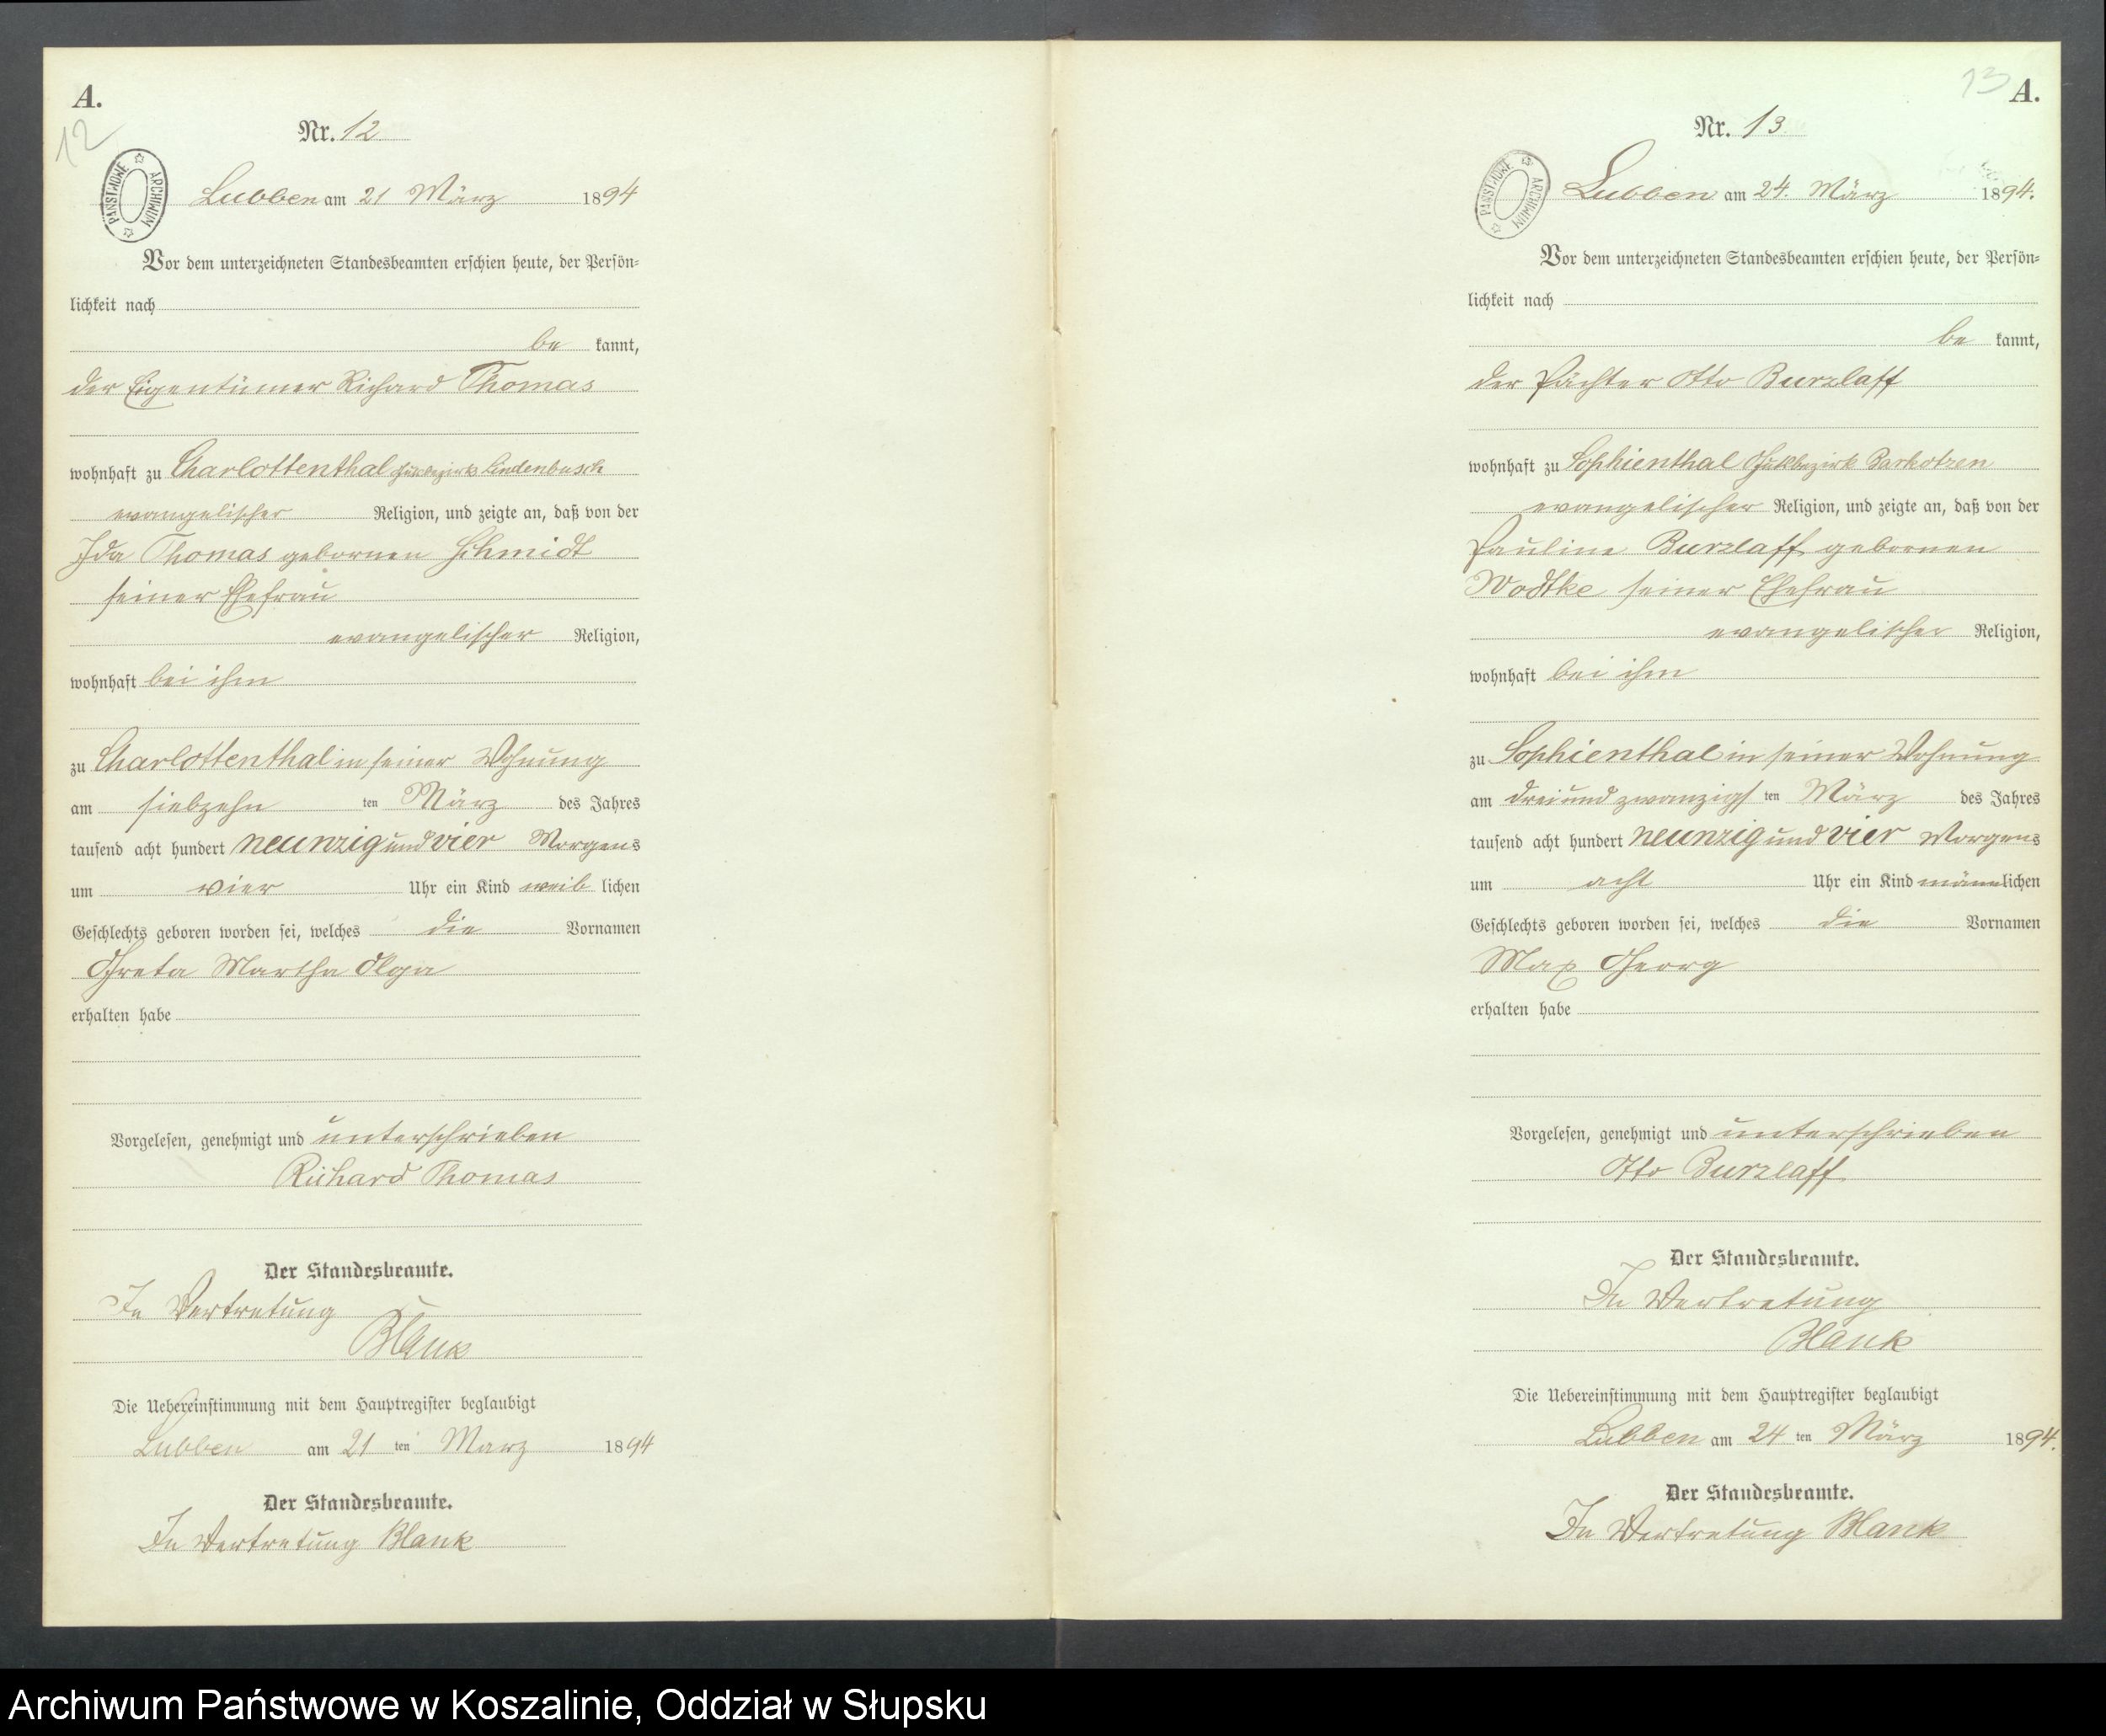 A.
12
Nr. 12
PAŃSTWOWE ARCHIWUM
Lubben am 21 März 1894
Vor dem unterzeichneten Standesbeamten erschien heute, der Persön=
lichkeit nach
be kannt,
der Eigentümer Richard Thomas
wohnhaft zu Charlottenthal Gutsbezirk Lindenbusch
evangelischer Religion, und zeigte an, daß von der
Ida Thomas gebornen Schmidt
seiner Ehefrau
evangelischer Religion,
wohnhaft bei ihm
zu Charlottenthal in seiner Wohnung
am siebzehn ten März des Jahres
tausend acht hundert neunzig und vier Morgens
um vier Uhr ein Kind weib lichen
Geschlechts geboren worden sei, welches die Vornamen
Greta Martha Olga
erhalten habe
Vorgelesen, genehmigt und unterschrieben
Richard Thomas
Der Standesbeamte.
In Vertretung
Blank
Die Uebereinstimmung mit dem Hauptregister beglaubigt
Lubben am 21 ten März 1894
Der Standesbeamte.
In Vertretung Blank
13 A.
Nr. 13
PAŃSTWOWE ARCHIWUM
Lubben am 24. März 1894.
Vor dem unterzeichneten Standesbeamten erschien heute, der Persön=
lichkeit nach
be kannt,
der Pächter Otto Burzlaff
wohnhaft zu Sophienthal Gutsbezirk Barkotzen
evangelischer Religion, und zeigte an, daß von der
Pauline Burzlaff gebornen
Wodtke seiner Ehefrau
evangelischer Religion,
wohnhaft bei ihm
zu Sophienthal in seiner Wohnung
am dreiundzwanzigs ten März des Jahres
tausend acht hundert neunzig und vier Morgens
um acht Uhr ein Kind männlichen
Geschlechts geboren worden sei, welches die Vornamen
Max Georg
erhalten habe
Vorgelesen, genehmigt und unterschrieben
Otto Burzlaff
Der Standesbeamte.
In Vertretung
Blank
Die Uebereinstimmung mit dem Hauptregister beglaubigt
Lubben am 24 ten März 1894.
Der Standesbeamte.
In Vertretung Blank
Archiwum Państwowe w Koszalinie, Oddział w Słupsku